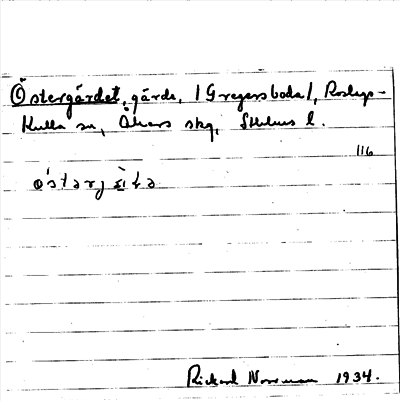 Östergärdet, gärde, /Gregersboda/, Roslags-
Kulla sn, Åkers skg, Sthlms l.
116
Rickard Norrman 1934.